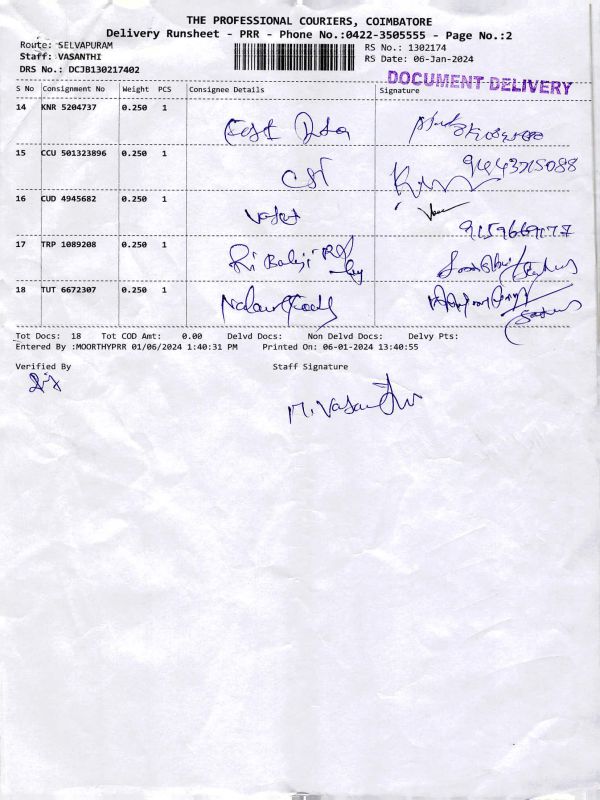 THE PROFESSIONAL COURIERS, COIMBATORE
Delivery Runsheet - PRR - Phone No.:0422-3505555 - Page No.:2
Route: SELVAPURAM
RS No.: 1302174
Staff: VASANTHI
RS Date: 06-Jan-2024
DRS No.: DCJB130217402
DOCUMENT DELIVERY
S No Consignment No Weight PCS Consignee Details Signature
14 KNR 5204737 0.250 1
15 CCU 501323896 0.250 1 CST
16 CUD 4945682 0.250 1
17 TRP 1089208 0.250 1 Sri Balaji
18 TUT 6672307 0.250 1
Tot Docs: 18 Tot COD Amt: 0.00 Delvd Docs: Non Delvd Docs: Delvy Pts:
Entered By :MOORTHYPRR 01/06/2024 1:40:31 PM Printed On: 06-01-2024 13:40:55
Verified By Staff Signature
M. Vasanthi